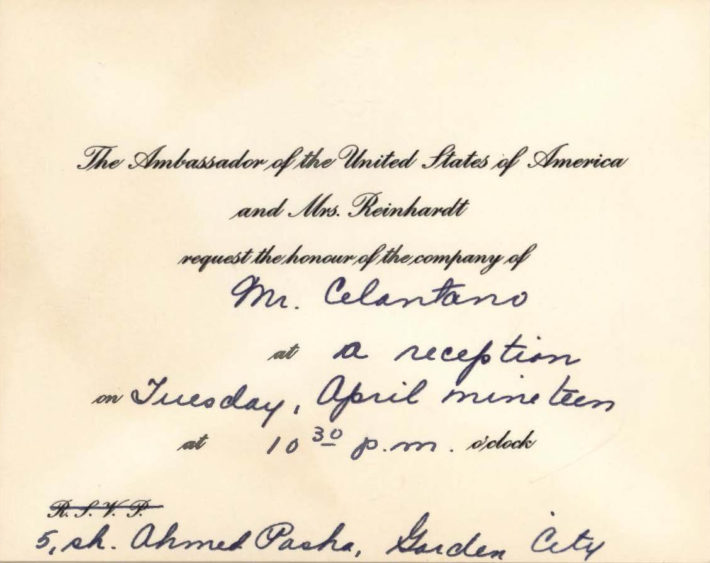 The Ambassador of the United States of America
and Mrs. Reinhardt
request the honour of the company of
Mr. Celantano
at a reception
on Tuesday, April nineteen
at 10 30 p.m. o'clock
R.S.V.P.
5, sh. Ahmed Pasha, Garden City